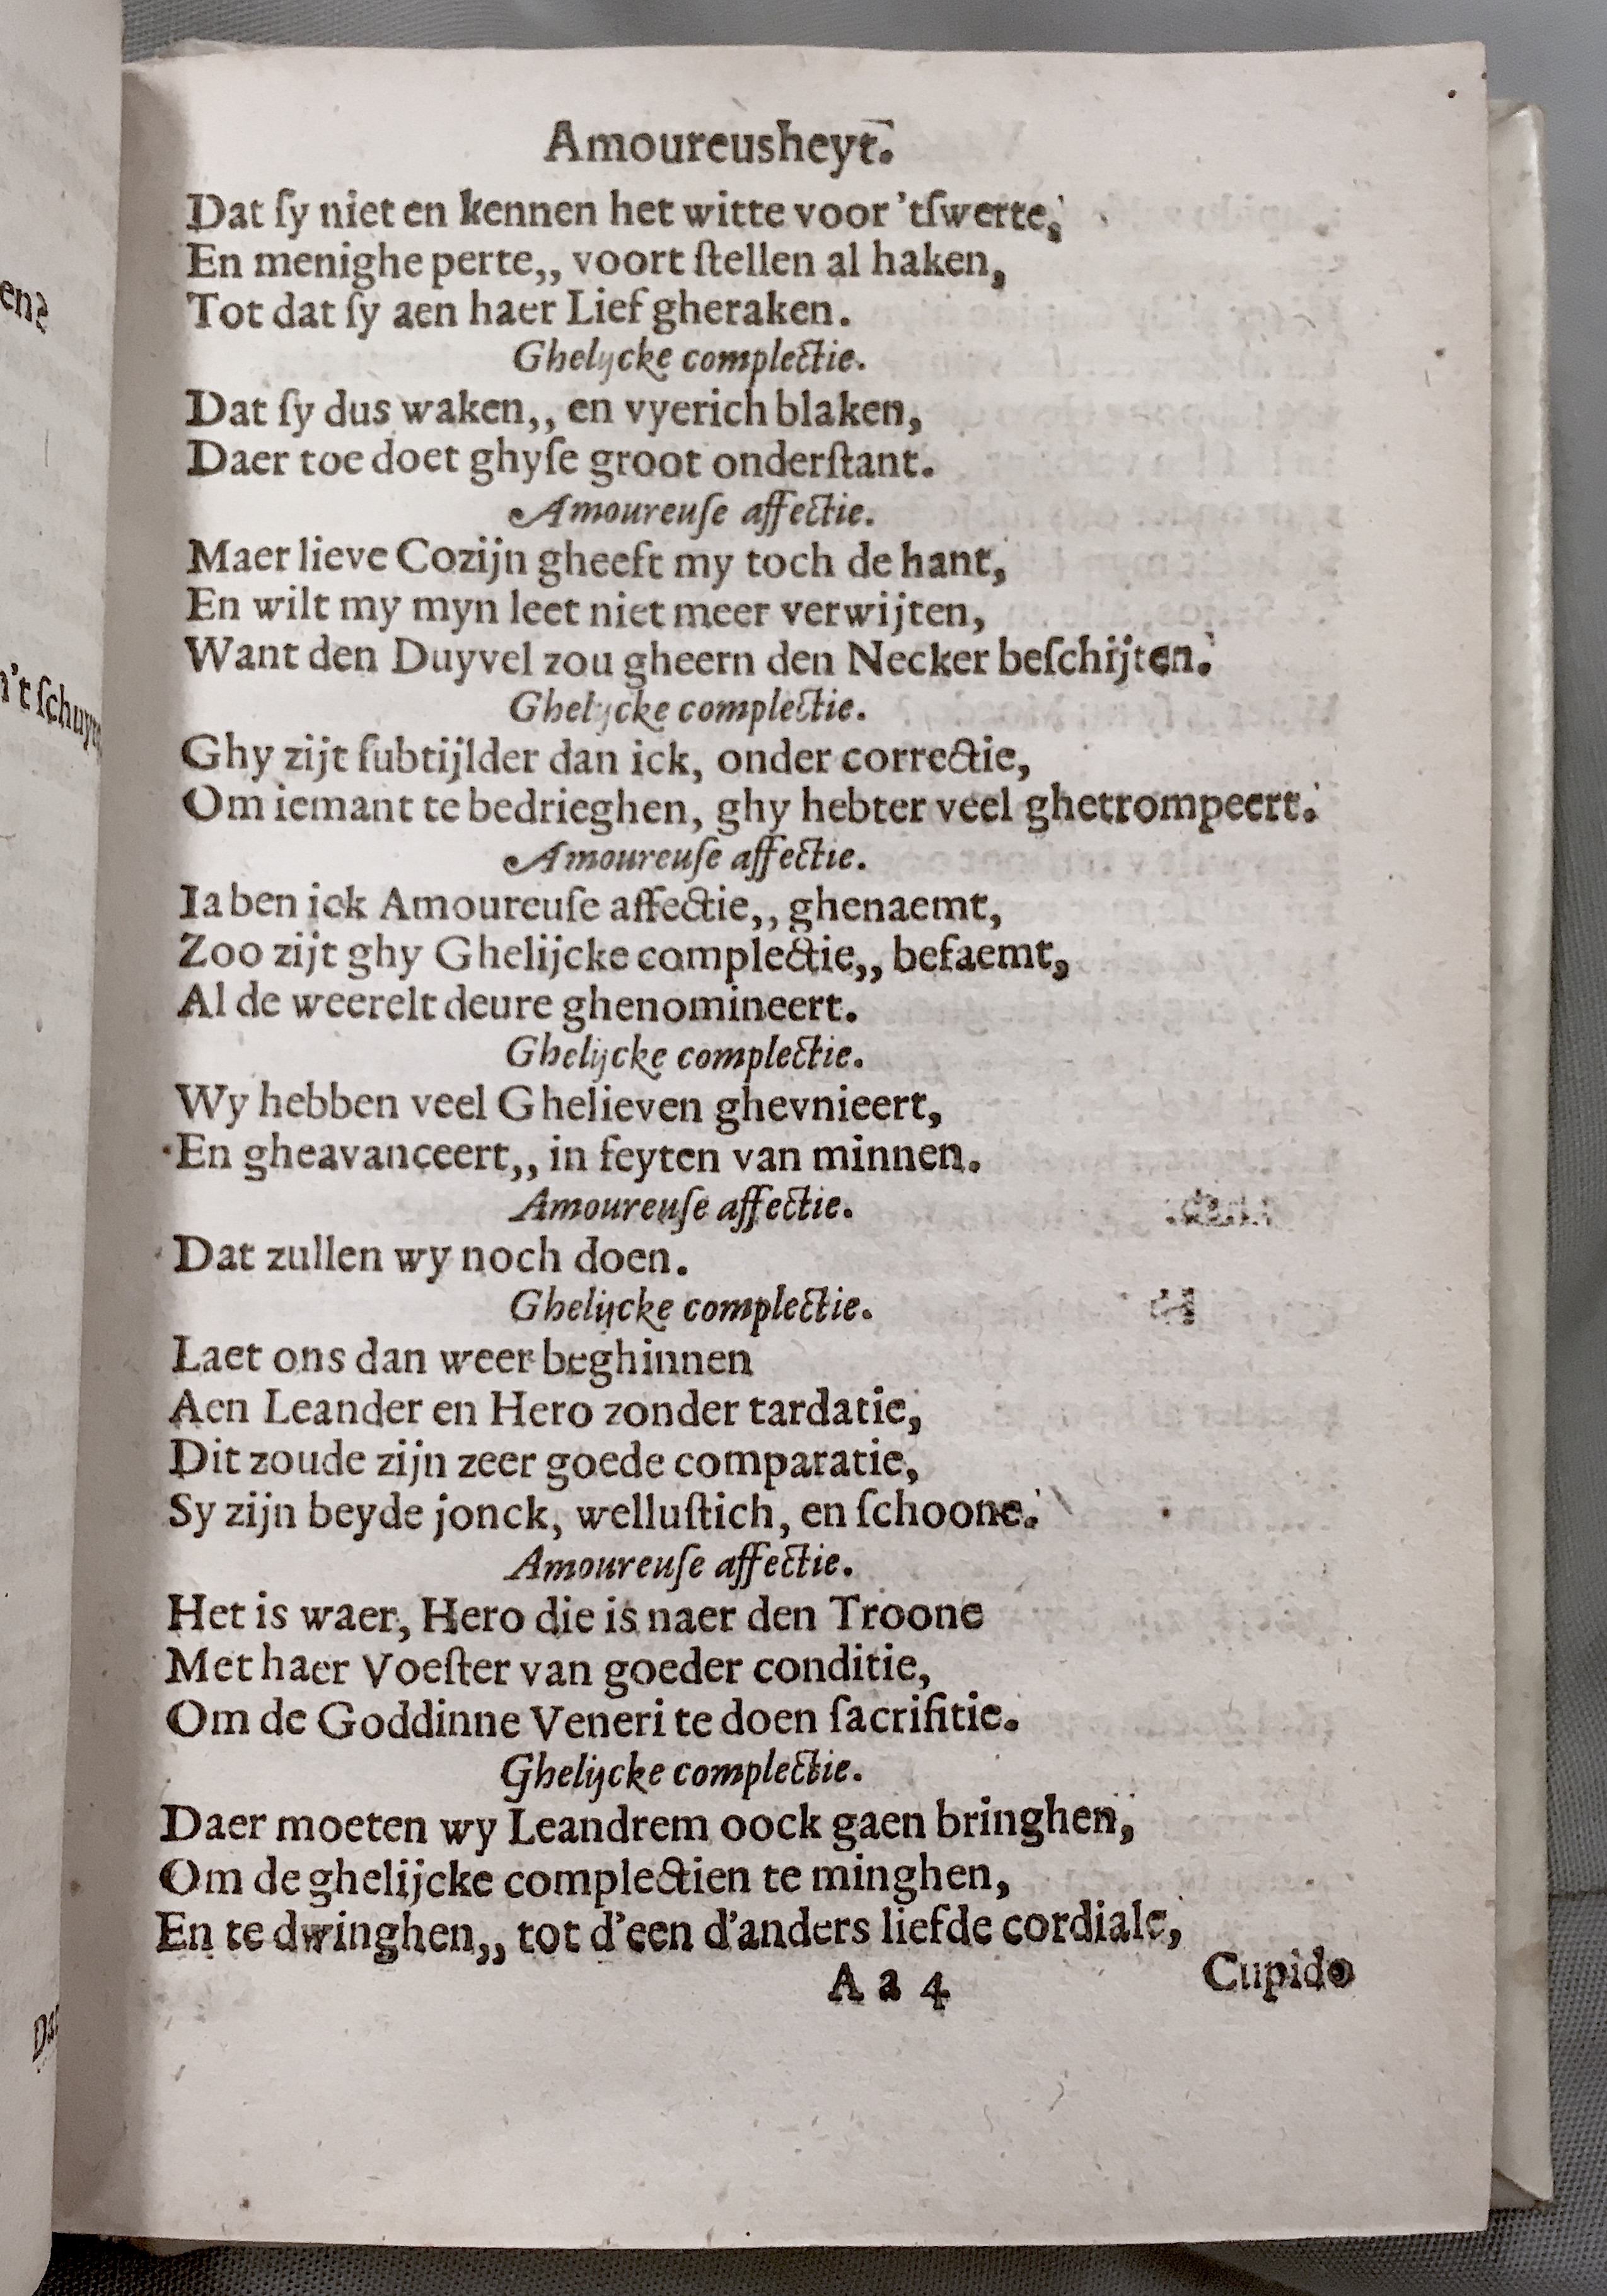 Amoureusheyt.
Dat ſy niet en kennen het witte voor 'tſwerte,
En menighe perte,, voort ſtellen al haken,
Tot dat ſy aen haer Lief gheraken.
Ghelijcke complectie.
Dat ſy dus waken,, en vyerich blaken,
Daer toe doet ghyſe groot onderſtant.
Amoureuſe affectie.
Maer lieve Cozijn gheeft my toch de hant,
En wilt my myn leet niet meer verwijten,
Want den Duyvel zou gheern den Necker beſchijten.
Ghelijcke complectie.
Ghy zijt ſubtijlder dan ick, onder correctie,
Om iemant te bedrieghen, ghy hebter veel ghetrompeert.
Amoureuſe affectie.
Ia ben ick Amoureuſe affectie,, ghenaemt,
Zoo zijt ghy Ghelijcke complectie,, befaemt,
Al de weerelt deure ghenomineert.
Ghelijcke complectie.
Wy hebben veel Ghelieven ghevnieert,
En gheavanceert,, in feyten van minnen.
Amoureuſe affectie.
Dat zullen wy noch doen.
Ghelijcke complectie.
Laet ons dan weer beghinnen
Aen Leander en Hero zonder tardatie,
Dit zoude zijn zeer goede comparatie,
Sy zijn beyde jonck, welluſtich, en ſchoone.
Amoureuſe affectie.
Het is waer, Hero die is naer den Troone
Met haer Voeſter van goeder conditie,
Om de Goddinne Veneri te doen ſacrifitie.
Ghelijcke complectie.
Daer moeten wy Leandrem oock gaen bringhen,
Om de ghelijcke complectien te minghen,
En te dwinghen,, tot d'een d'anders liefde cordiale,
A a 4
Cupido